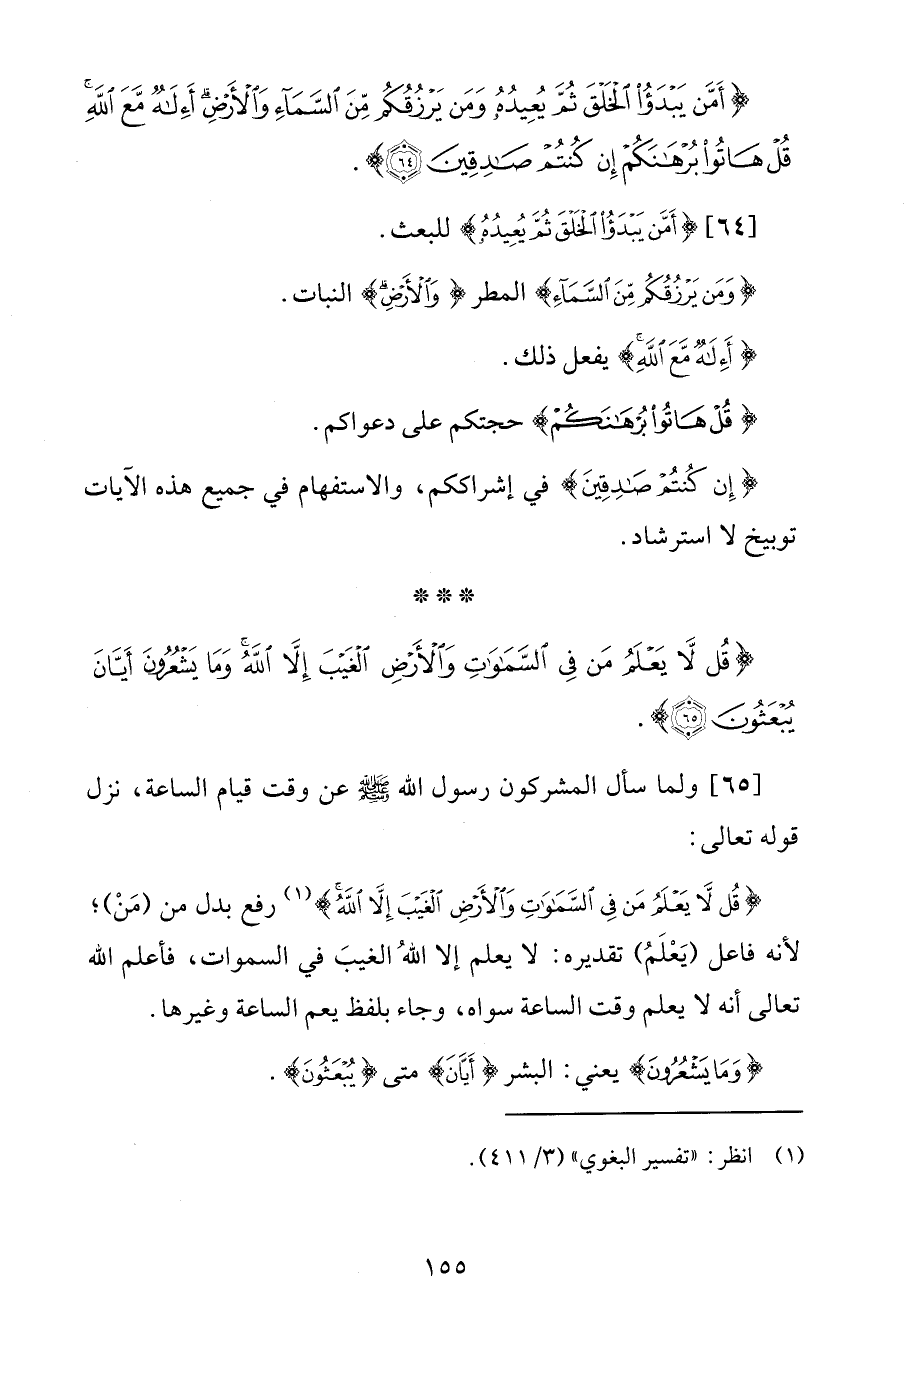 ﴿أَمَّن يَبْدَؤُا۟ الْخَلْقَ ثُمَّ يُعِيدُهُۥ وَمَن يَرْزُقُكُم مِّنَ السَّمَآءِ وَٱلْأَرْضِۗ أَءِلَٰهٌ مَّعَ ٱللَّهِۚ
قُلْ هَاتُوا۟ بُرْهَٰنَكُمْ إِن كُنتُمْ صَٰدِقِينَ ٦٤﴾.
[٦٤] ﴿أَمَّن يَبْدَؤُا۟ الْخَلْقَ ثُمَّ يُعِيدُهُۥ﴾ للبعث.
﴿وَمَن يَرْزُقُكُم مِّنَ السَّمَآءِ﴾ المطر ﴿وَٱلْأَرْضِۗ﴾ النبات.
﴿أَءِلَٰهٌ مَّعَ ٱللَّهِۚ﴾ يفعل ذلك.
﴿قُلْ هَاتُوا۟ بُرْهَٰنَكُمْ﴾ حجتكم على دعواكم.
﴿إِن كُنتُمْ صَٰدِقِينَ﴾ في إشراككم، والاستفهام في جميع هذه الآيات
توبيخ لا استرشاد.
***
﴿قُل لَّا يَعْلَمُ مَن فِى ٱلسَّمَٰوَٰتِ وَٱلْأَرْضِ ٱلْغَيْبَ إِلَّا ٱللَّهُۚ وَمَا يَشْعُرُونَ أَيَّانَ
يُبْعَثُونَ ٦٥﴾.
[٦٥] ولما سأل المشركون رسول الله ﷺ عن وقت قيام الساعة، نزل
قوله تعالى:
﴿قُل لَّا يَعْلَمُ مَن فِى ٱلسَّمَٰوَٰتِ وَٱلْأَرْضِ ٱلْغَيْبَ إِلَّا ٱللَّهُۚ﴾(١) رفع بدل من (مَنْ)؛
لأنه فاعل (يَعْلَمُ) تقديره: لا يعلم إلا اللهُ الغيبَ في السموات، فأعلم الله
تعالى أنه لا يعلم وقت الساعة سواه، وجاء بلفظ يعم الساعة وغيرها.
﴿وَمَا يَشْعُرُونَ﴾ يعني: البشر ﴿أَيَّانَ﴾ متى ﴿يُبْعَثُونَ﴾.
(١) انظر: «تفسير البغوي» (٣/ ٤١١).
١٥٥